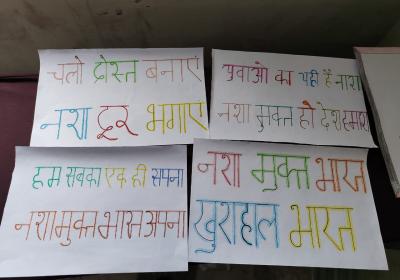 चलो दोस्त बनाएं
नशा दूर भगाए
युवाओ का यही है नारा
नशा मुक्त हो देश हमारा
हम सबका एक ही सपना
नशा मुक्त भारत अपना
नशा मुक्त भारत
खुशहाल भारत